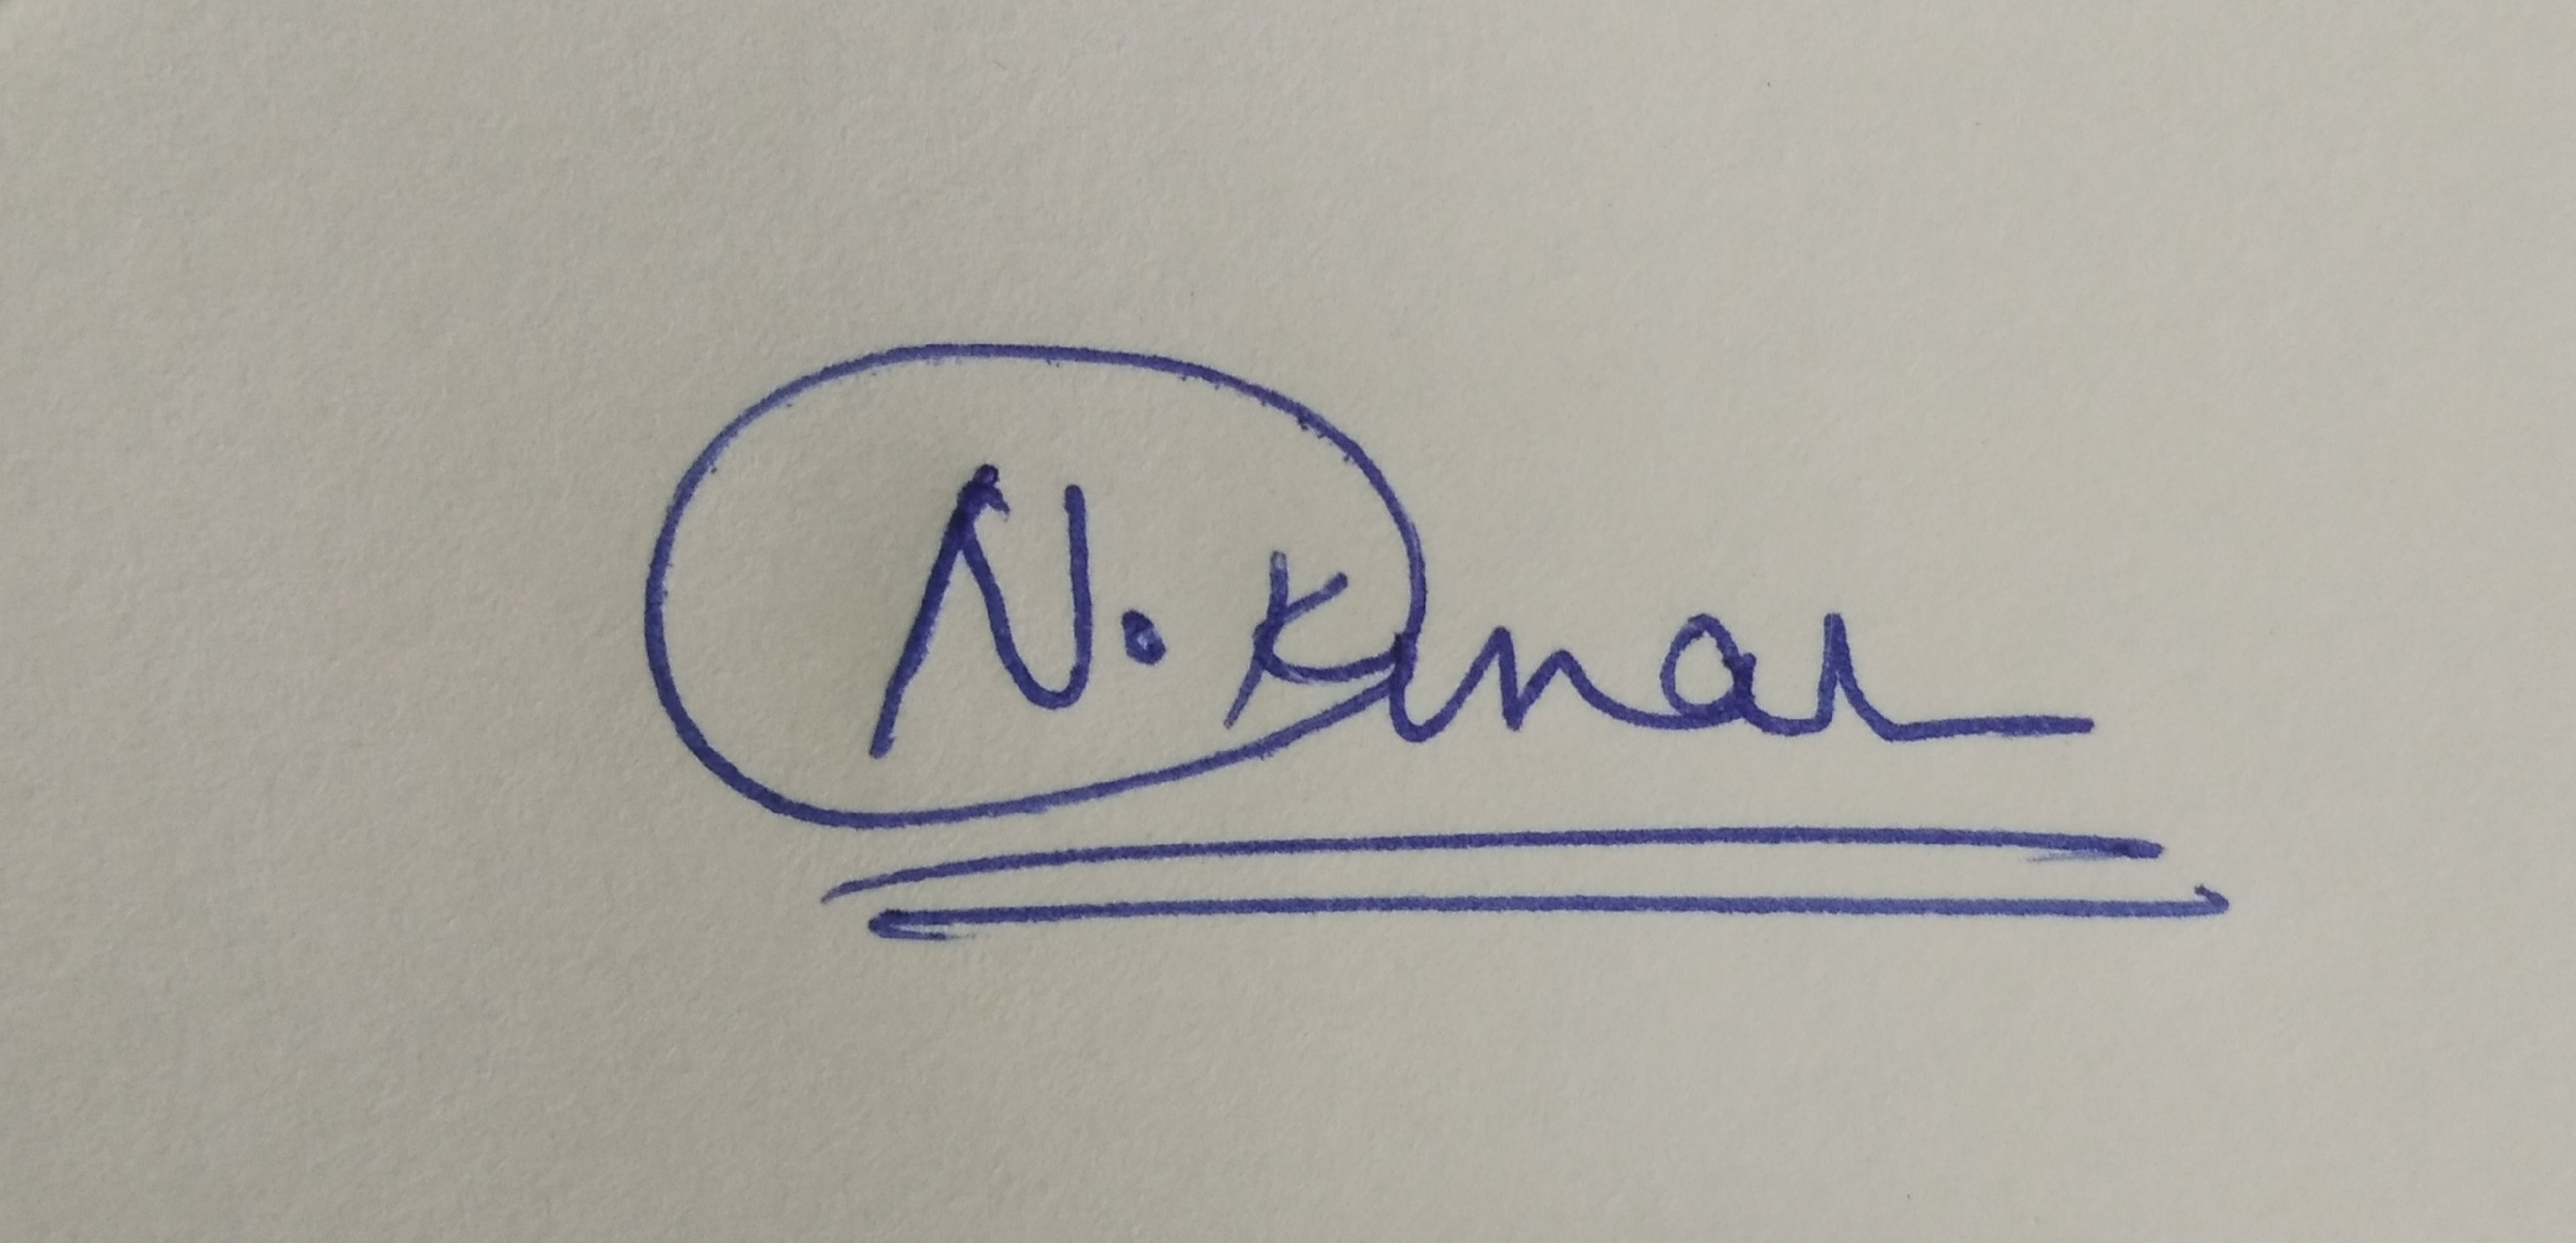 N. Kumar